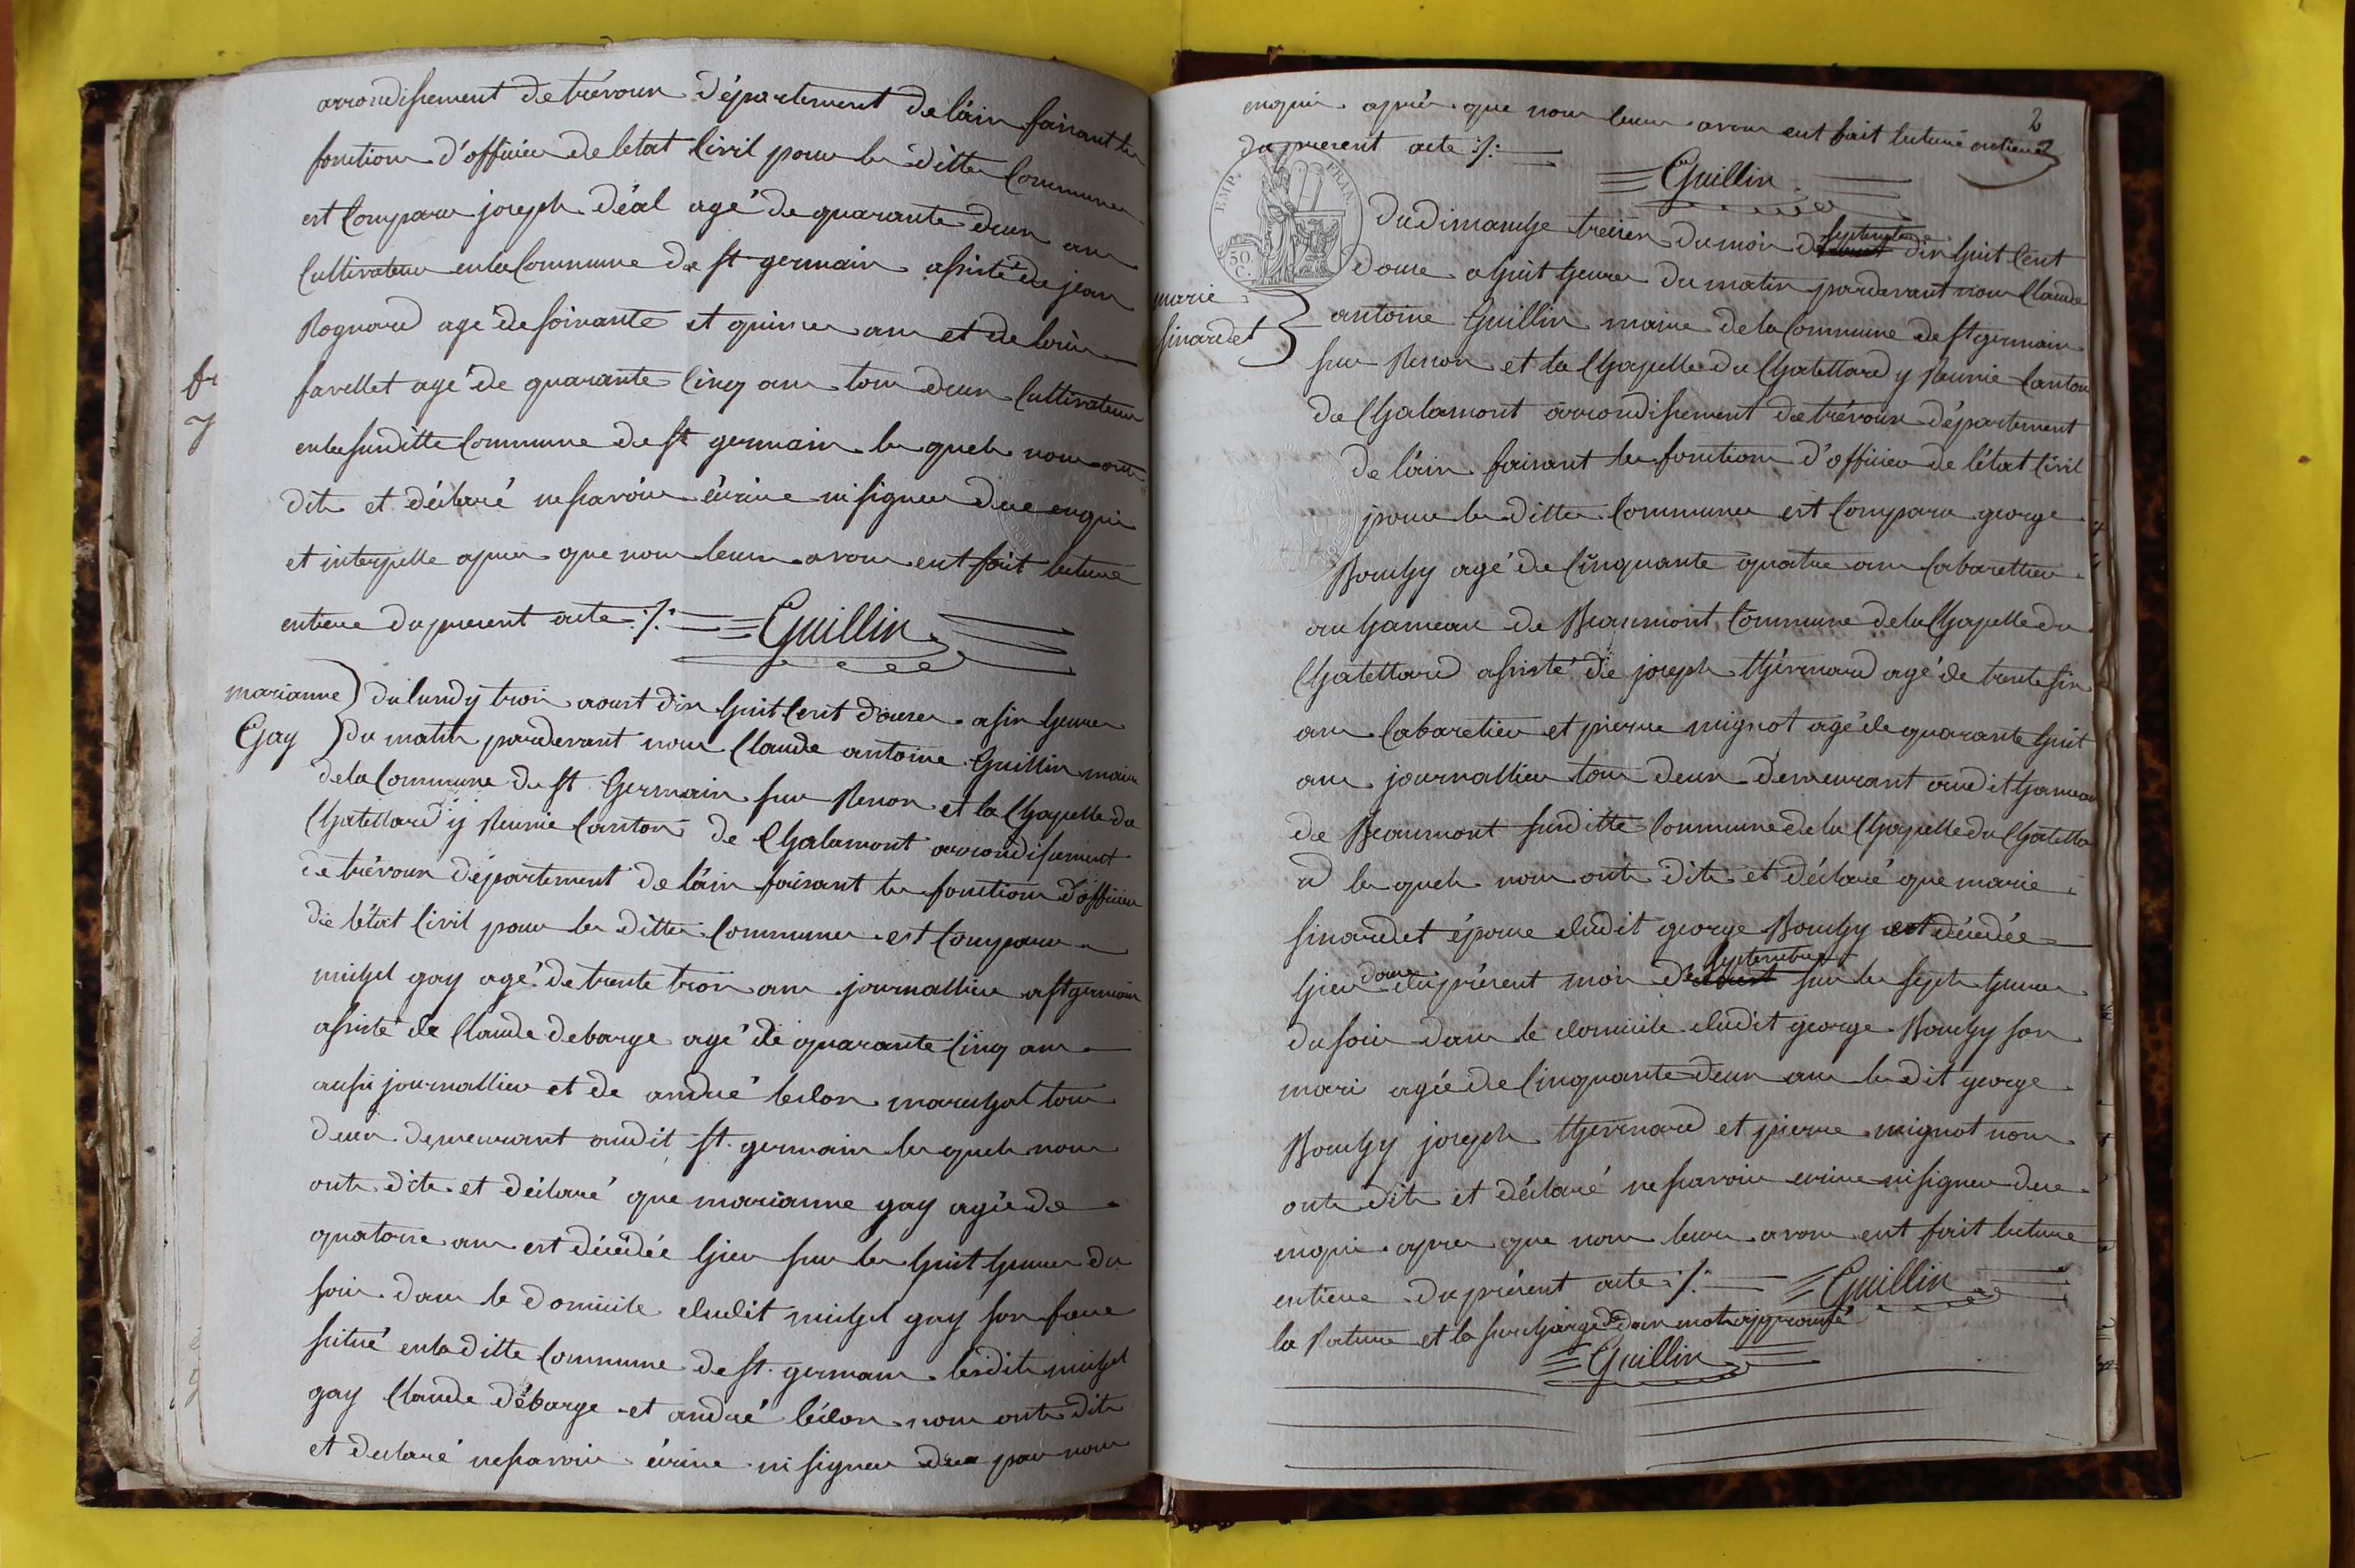 arrondissement de trévoux département de l'ain faisant les
fonctions d'officier de letat Civil pour les dittes Communes
est Comparu joseph déal agé de quarante deux ans
Cultivateur en la Commune de st germain assisté de jean
Rognard agé de soixante et quinze ans et de louis
favellet agé de quarante Cinq ans tous deux Cultivateurs
en la susditte Commune de st germain les quels nous ont
dits et déclaré ne savoir écrire ni signer de ce enquis
et interpelle après que nous leurs avons eut fait lecture
entiere du present acte ./. Guillin
marianne
Gay
du lundy trois aoust dix huit Cent douze a six heures
du matin pardevant nous Claude antoine Guillin maire
de la Commune de st Germain sur Renon et la Chapelle du
Chatellard y Reunie Canton de Chalamont arrondissement
de trévoux département de l'ain faisant les fonctions d'officier
de l'état Civil pour les dittes Communes est Comparu
michel gay agé de trente trois ans journallier a st germain
assisté de Claude debarge agé de quarante Cinq ans
aussi journallier et de andré leclon marechal tous
deux demeurant audit st germain les quels nous
onts dits et déclaré que marianne gay agée de
quatorze ans est décédée hier sur les huit heures du
soir dans le domicile dudit michel gay son frere
situé en la ditte Commune de st germain lesdits michel
gay Claude débarge et andré léclon nous onts dits
et declaré ne savoir écrire ni signer de ce par nous
2
enquis après que nous leurs avons eut fait lecture entiere
du present acte ./.
Guillin
EMP. FRAN.
50 C.
marie
sinardet
du dimanche treize du mois de septembre dix huit Cent
douze a huit heures du matin pardevant nous Claude
antoine Guillin maire de la Commune de st germain
sur Renon et la Chapelle du Chatellard y Reunie Canton
de Chalamont arrondissement de trévoux département
de l'ain faisant les fonctions d'officier de l'état Civil
pour les dittes Communes est Comparu george
Bouchy agé de Cinquante quatre ans Cabarettier
au hameau de Beaumont Commune de la Chapelle du
Chatellard assisté de joseph thévenard agé de trente six
ans Cabaretier et pierre mignot agé de quarante huit
ans journallier tous deux demeurant audit hameau
de Beaumont susditte Commune de la Chapelle du Chatella
rd les quels nous onts dits et déclaré que marie
sinardet épouse dudit george Bouchy est décédée
hier douze du présent mois de septembre sur les sept heures
du soir dans le domicile dudit george Bouchy son
mari agée de Cinquante deux ans les dit george
Bouchy joseph thevenard et pierre mignot nous
onts dits et déclaré ne savoir ecrire ni signer de ce
enquis apres que nous leurs avons eut fait lecture
entiere du présent acte ./. Guillin
la Rature et la surcharge de deux mots approuvé
Guillin